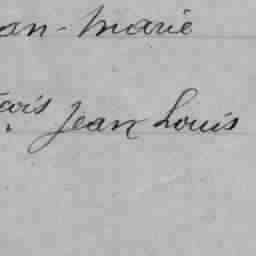 an-Marie
çois Jean Louis